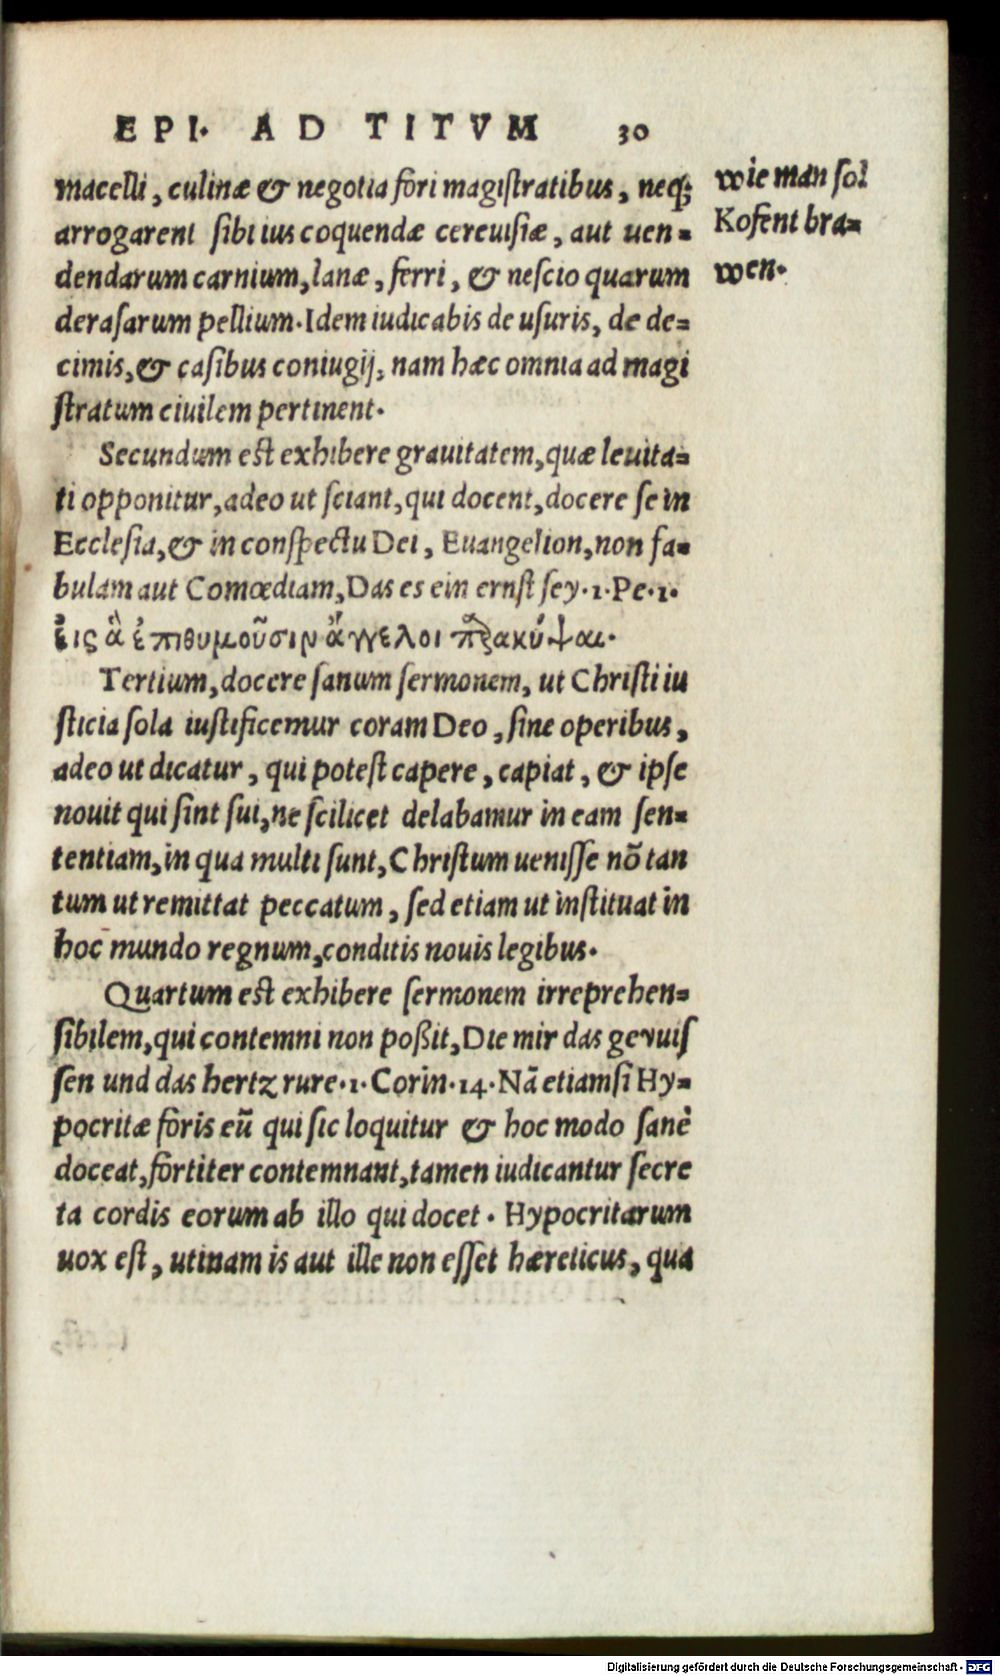 EPI. AD TITVM 30
macelli, culinæ & negotia fori magiſtratibus, neq;
arrogarent ſibi ius coquendæ cereuiſiæ, aut uen-
dendarum carnium, lanæ, ferri, & neſcio quarum
deraſarum pellium. Idem iudicabis de uſuris, de de-
cimis, & caſibus coniugij, nam hæc omnia ad magi
ſtratum ciuilem pertinent.
Secundum eſt exhibere grauitatem, quæ leuita-
ti opponitur, adeo ut ſciant, qui docent, docere ſe in
Eccleſia, & in conſpectu Dei, Euangelion, non fa-
bulam aut Comœdiam, Das es ein ernſt ſey. 1. Pe. 1.
εἰς ἃ ἐπιθυμοῦσιν ἄγγελοι παρακύψαι.
Tertium, docere ſanum ſermonem, ut Chriſti iu
ſticia ſola iuſtificemur coram Deo, ſine operibus,
adeo ut dicatur, qui poteſt capere, capiat, & ipſe
nouit qui ſint ſui, ne ſcilicet delabamur in eam ſen-
tentiam, in qua multi ſunt, Chriſtum ueniſſe nõ tan
tum ut remittat peccatum, ſed etiam ut inſtituat in
hoc mundo regnum, conditis nouis legibus.
Quartum eſt exhibere ſermonem irreprehen-
ſibilem, qui contemni non poßit, Die mir das gevuiſ
ſen und das hertz rure. 1. Corin. 14. Nã etiamſi Hy-
pocritæ foris eũ qui ſic loquitur & hoc modo ſanè
doceat, fortiter contemnant, tamen iudicantur ſecre
ta cordis eorum ab illo qui docet. Hypocritarum
uox eſt, utinam is aut ille non eſſet hæreticus, qua
wie man ſol
Kofent bra-
wen.
Digitalisierung gefördert durch die Deutsche Forschungsgemeinschaft - DFG